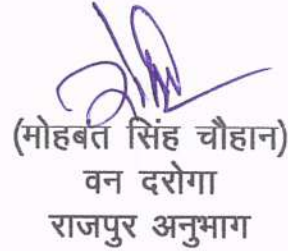 (मोहबत सिंह चौहान)
वन दरोगा
राजपुर अनुभाग